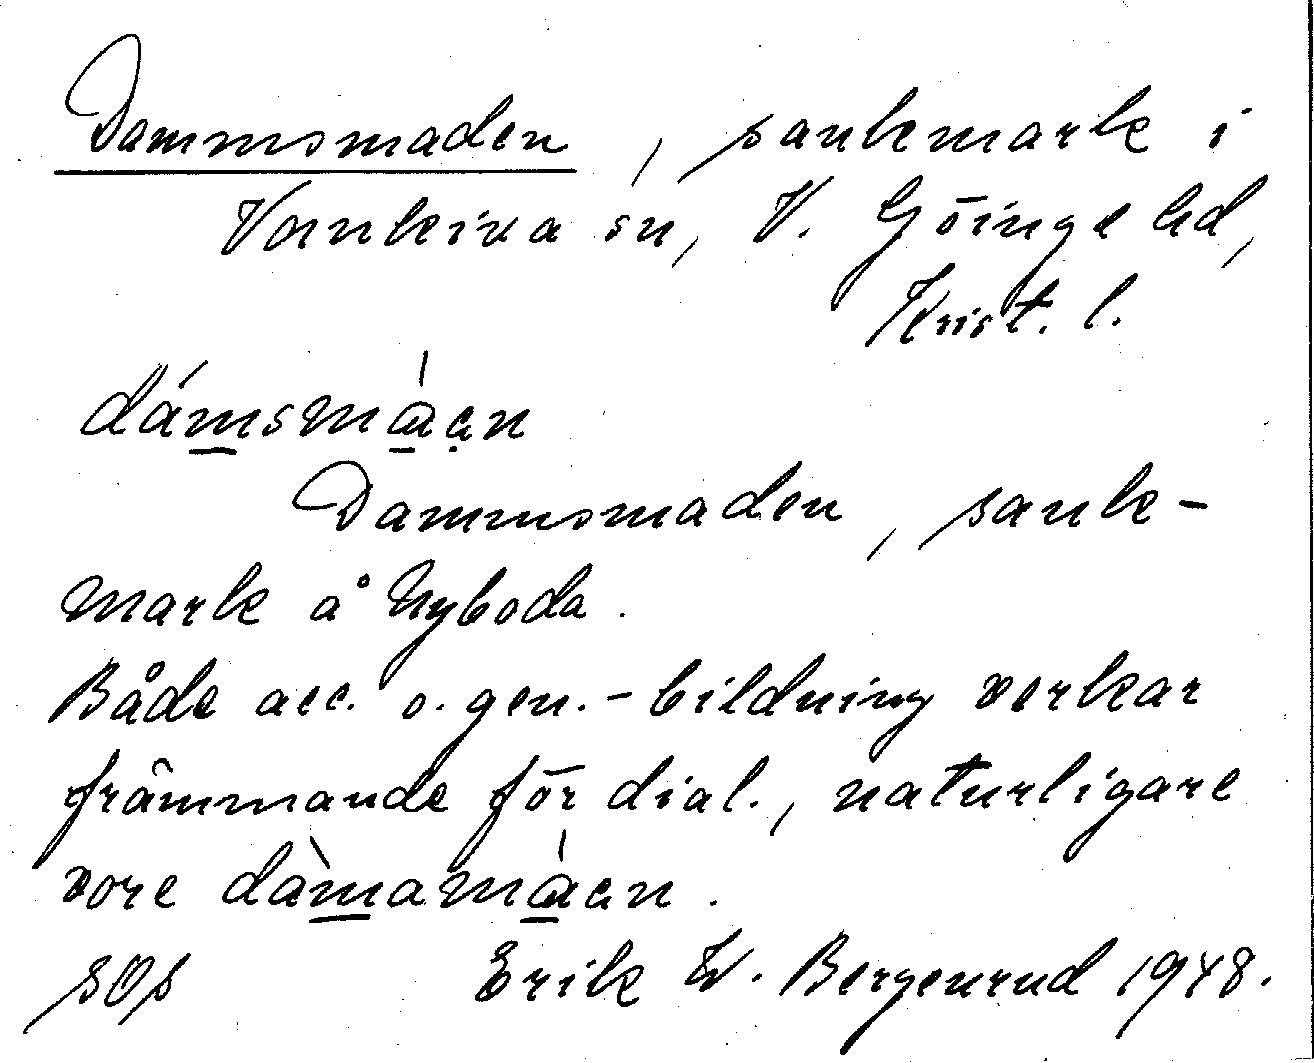 Dammsmaden, sankmark i
Vankiva sn, V. Göinge hd,
Krist. l.
dámsmáen
Dammsmaden, sank-
mark å Nyboda.
Både acc. o. gen.-bildning verkar
främmande för dial., naturligare
vore dàmamáen.
sOs Erik W. Bergenrud 1948.